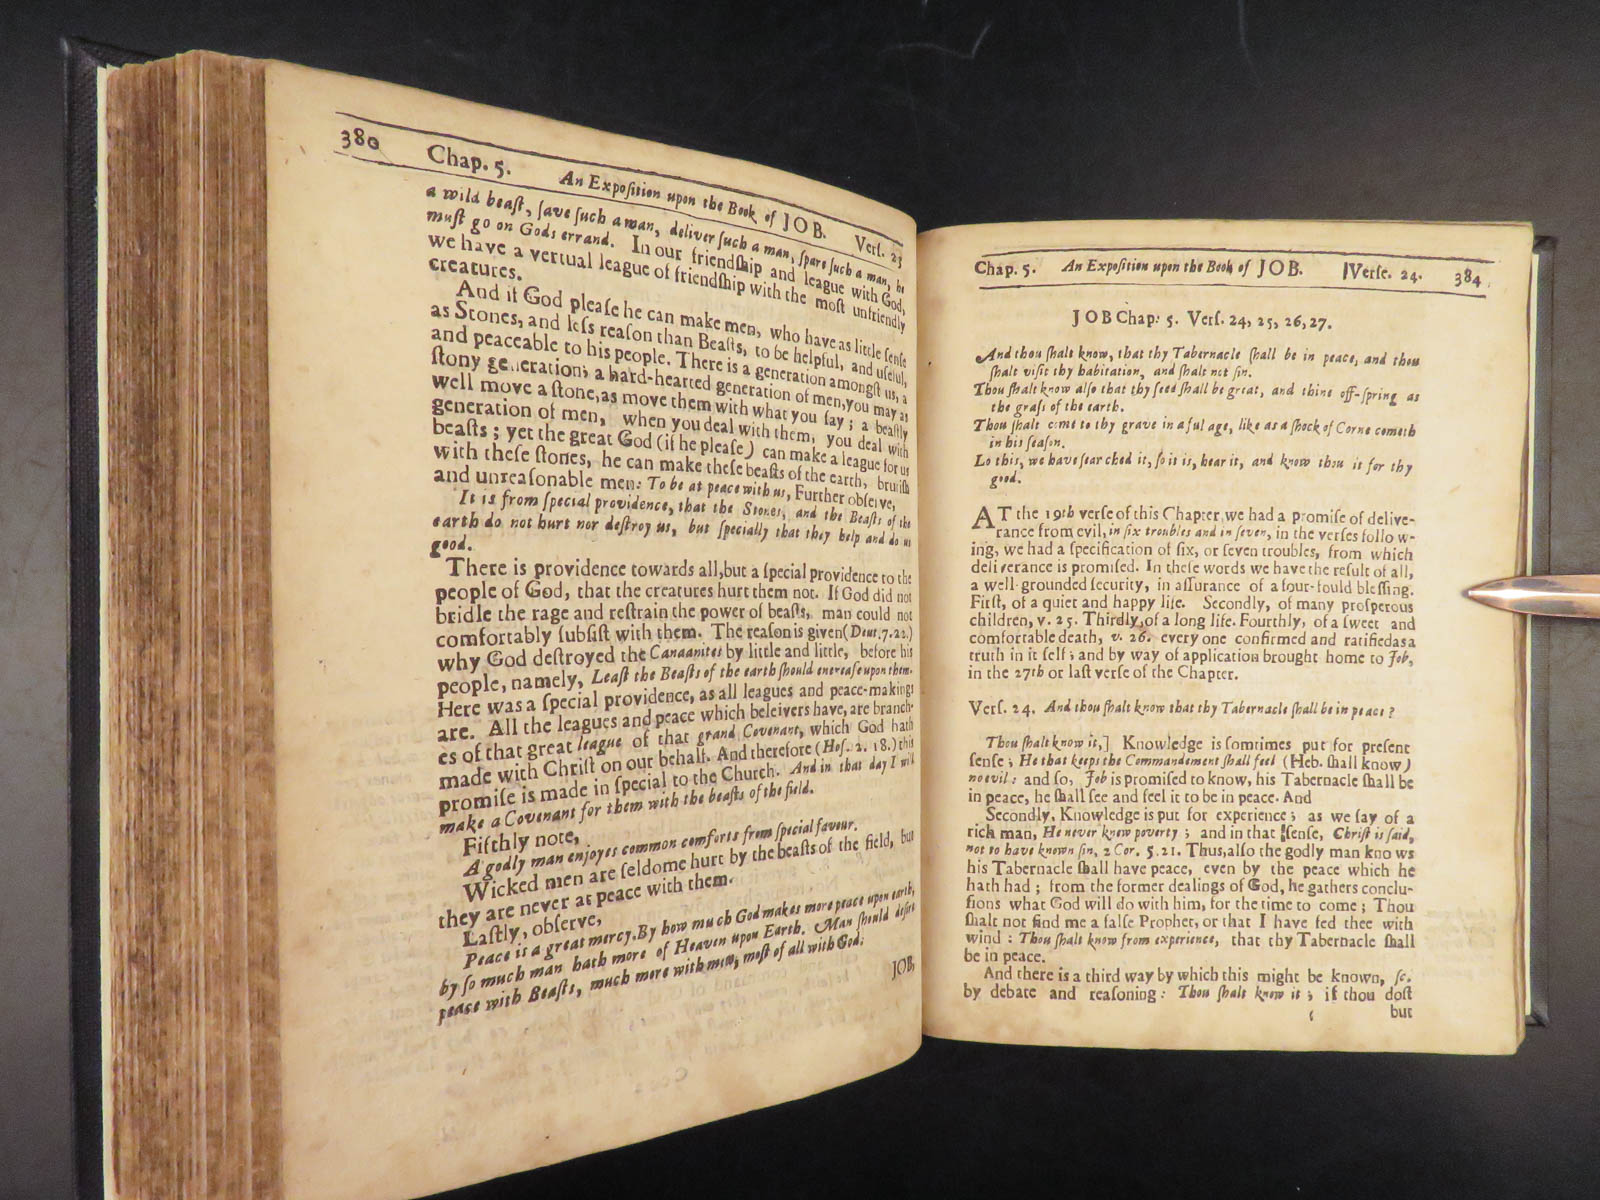 380 Chap. 5. An Expoſition upon the Book of JOB. Verſ. 23
a wild beaſt, ſave ſuch a man, deliver ſuch a man, ſpare ſuch a man, he
muſt go on Gods errand. In our friendſhip and league with God,
we have a vertual league of friendſhip with the moſt unfriendly
creatures.
And if God pleaſe he can make men, who have as little ſenſe
as Stones, and leſs reaſon than Beaſts, to be helpful, and uſeful,
and peaceable to his people. There is a generation amongſt us, a
ſtony generation; a hard-hearted generation of men, you may as
well move a ſtone, as move them with what you ſay; a beaſtly
generation of men, when you deal with them, you deal with
beaſts; yet the great God (if he pleaſe) can make a league for us
with theſe ſtones, he can make theſe beaſts of the earth, brutiſh
and unreaſonable men: To be at peace with us, Further obſerve,
It is from ſpecial providence, that the Stones, and the Beaſts of the
earth do not hurt nor deſtroy us, but ſpecially that they help and do us
good.
There is providence towards all, but a ſpecial providence to the
people of God, that the creatures hurt them not. If God did not
bridle the rage and reſtrain the power of beaſts, man could not
comfortably ſubſiſt with them. The reaſon is given (Deut. 7. 22.)
why God deſtroyed the Canaanites by little and little, before his
people, namely, Leaſt the Beaſts of the earth ſhould encreaſe upon them.
Here was a ſpecial providence, as all leagues and peace-makings
are. All the leagues and peace which beleivers have, are branch-
es of that great league of that grand Covenant, which God hath
made with Chriſt on our behalf. And therefore (Hoſ. 2. 18.) this
promiſe is made in ſpecial to the Church. And in that day I will
make a Covenant for them with the beaſts of the field.
Fifthly note,
A godly man enjoyes common comforts from ſpecial favour.
Wicked men are ſeldome hurt by the beaſts of the field, but
they are never at peace with them.
Laſtly, obſerve,
Peace is a great mercy. By how much God makes more peace upon earth,
by ſo much man hath more of Heaven upon Earth. Man ſhould deſire
peace with Beaſts, much more with men, moſt of all with God.
JOB,
Chap. 5. An Expoſition upon the Book of JOB. Verſe. 24. 384
JOB Chap: 5. Verſ. 24, 25, 26, 27.
And thou ſhalt know, that thy Tabernacle ſhall be in peace, and thou
ſhalt viſit thy habitation, and ſhalt not ſin.
Thou ſhalt know alſo that thy ſeed ſhall be great, and thine off-ſpring as
the graſs of the earth.
Thou ſhalt come to thy grave in a ful age, like as a ſhock of Corne cometh
in his ſeaſon.
Lo this, we have ſearched it, ſo it is, hear it, and know thou it for thy
good.
AT the 19th verſe of this Chapter, we had a promiſe of delive-
rance from evil, in ſix troubles and in ſeven, in the verſes follow-
ing, we had a ſpecification of ſix, or ſeven troubles, from which
deliverance is promiſed. In theſe words we have the reſult of all,
a well-grounded ſecurity, in aſſurance of a four-fould bleſſing.
Firſt, of a quiet and happy life. Secondly, of many proſperous
children, v. 25. Thirdly, of a long life. Fourthly, of a ſweet and
comfortable death, v. 26. every one confirmed and ratified as a
truth in it ſelf; and by way of application brought home to Job,
in the 27th or laſt verſe of the Chapter.
Verſ. 24. And thou ſhalt know that thy Tabernacle ſhall be in peace?
Thou ſhalt know it,] Knowledge is ſomtimes put for preſent
ſenſe; He that keeps the Commandement ſhall feel (Heb. ſhall know)
no evil: and ſo, Job is promiſed to know, his Tabernacle ſhall be
in peace, he ſhall ſee and feel it to be in peace. And
Secondly, Knowledge is put for experience; as we ſay of a
rich man, He never knew poverty; and in that ſenſe, Chriſt is ſaid,
not to have known ſin, 2 Cor. 5. 21. Thus, alſo the godly man knows
his Tabernacle ſhall have peace, even by the peace which he
hath had; from the former dealings of God, he gathers conclu-
ſions what God will do with him, for the time to come; Thou
ſhalt not find me a falſe Prophet, or that I have fed thee with
wind: Thou ſhalt know from experience, that thy Tabernacle ſhall
be in peace.
And there is a third way by which this might be known, ſc.
by debate and reaſoning: Thou ſhalt know it; if thou doſt
but